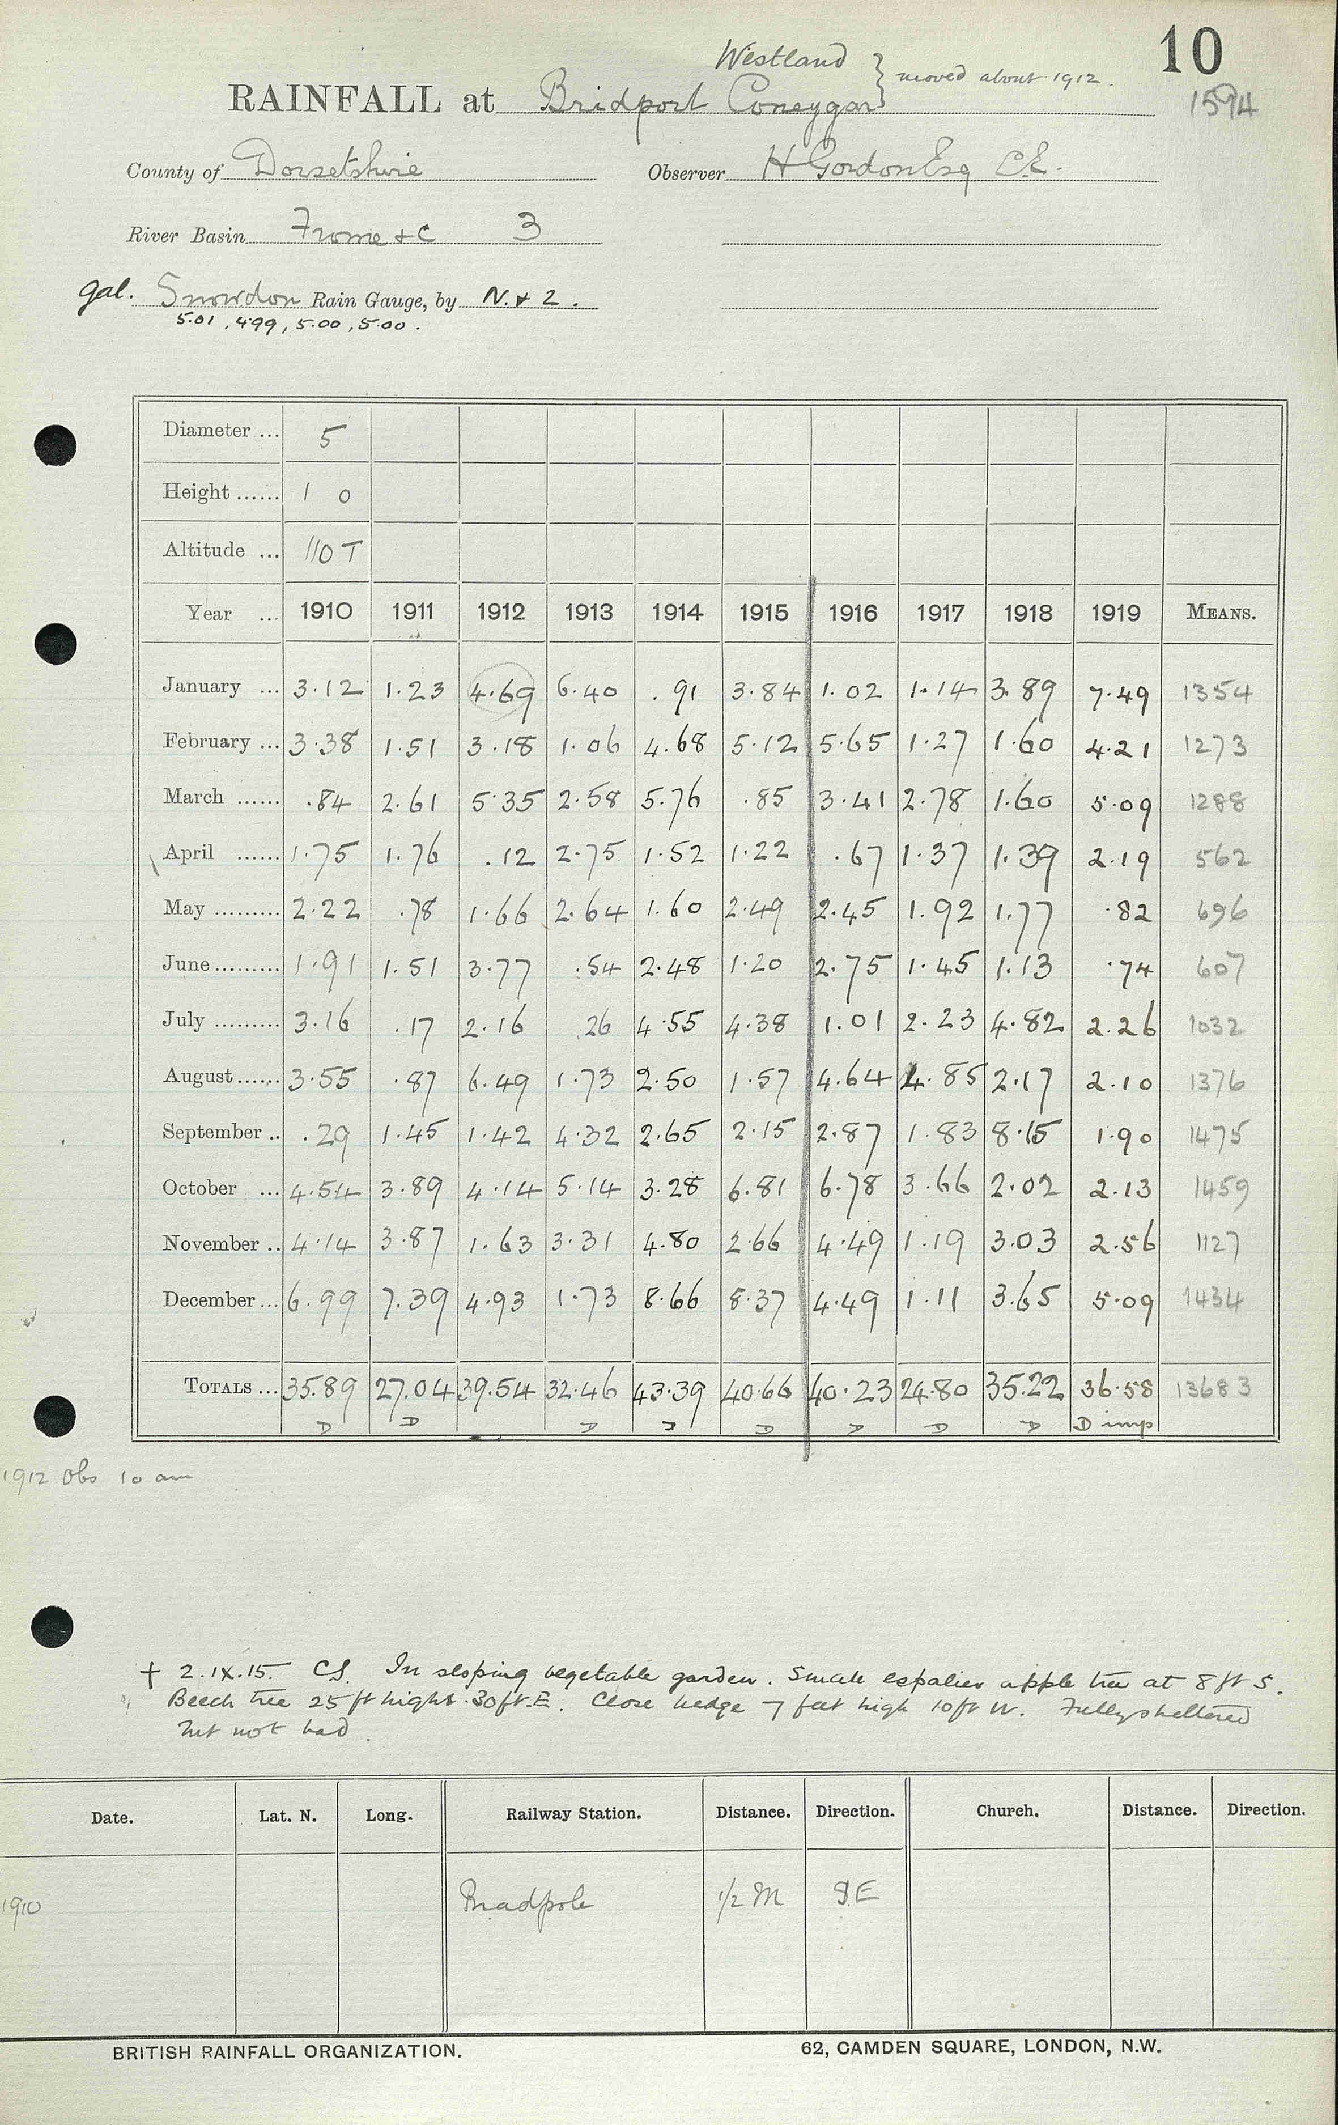 Westland } moved about 1912. 10
RAINFALL at Bridport Coneygar 1594
County of Dorsetshire Observer H Gordon Esq C.E.
River Basin Frome &c 3
gal. Snowdon Rain Gauge, by N. & Z.
5.01, 4.99, 5.00, 5.00.
Diameter ... 5
Height ...... 1 0
Altitude ... 110 T
Year ... 1910 1911 1912 1913 1914 1915 1916 1917 1918 1919 MEANS.
January ... 3.12 1.23 4.69 6.40 .91 3.84 1.02 1.14 3.89 7.49 1354
February ... 3.38 1.51 3.18 1.06 4.68 5.12 5.65 1.27 1.60 4.21 1273
March ...... .84 2.61 5.35 2.58 5.76 .85 3.41 2.78 1.60 5.09 1288
April ...... 1.75 1.76 .12 2.75 1.52 1.22 .67 1.37 1.39 2.19 562
May ......... 2.22 .78 1.66 2.64 1.60 2.49 2.45 1.92 1.77 .82 696
June ......... 1.91 1.51 3.77 .54 2.48 1.20 2.75 1.45 1.13 .74 607
July ......... 3.16 .17 2.16 .26 4.55 4.38 1.01 2.23 4.82 2.26 1032
August ...... 3.55 .87 6.49 1.73 2.50 1.57 4.64 4.85 2.17 2.10 1376
September .. .29 1.45 1.42 4.32 2.65 2.15 2.87 1.83 8.15 1.90 1475
October ... 4.54 3.89 4.14 5.14 3.28 6.81 6.78 3.66 2.02 2.13 1459
November .. 4.14 3.87 1.63 3.31 4.80 2.66 4.49 1.19 3.03 2.56 1127
December ... 6.99 7.39 4.93 1.73 8.66 8.37 4.49 1.11 3.65 5.09 1434
TOTALS ... 35.89 27.04 39.54 32.46 43.39 40.66 40.23 24.80 35.22 36.58 13683
D D D D D D D D D imp
1912 Obs 10 am
† 2.IX.15. CS. In sloping vegetable garden. Small espalier apple tree at 8 ft S.
Beech tree 25 ft hight 30 ft. E. Close hedge 7 feet high 10 ft W. Fully sheltered
but not bad.
Date. Lat. N. Long. Railway Station. Distance. Direction. Church. Distance. Direction.
1910 Bradpole 1/2 M S E
BRITISH RAINFALL ORGANIZATION. 62, CAMDEN SQUARE, LONDON, N.W.